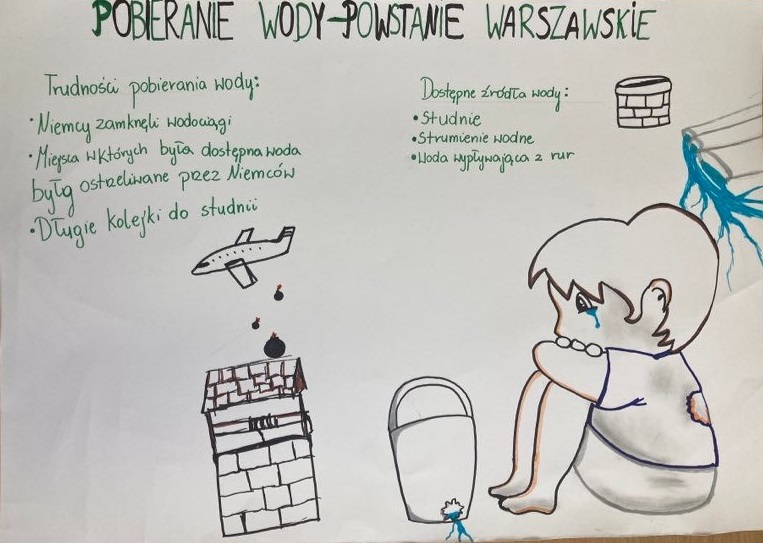 POBIERANIE WODY-POWSTANIE WARSZAWSKIE
Trudności pobierania wody:
• Niemcy zamknęli wodociągi
• Miejsca w których była dostępna woda
były ostrzeliwane przez Niemców
• Długie kolejki do studnii
Dostępne źródła wody:
• Studnie
• Strumienie wodne
• Woda wypływająca z rur